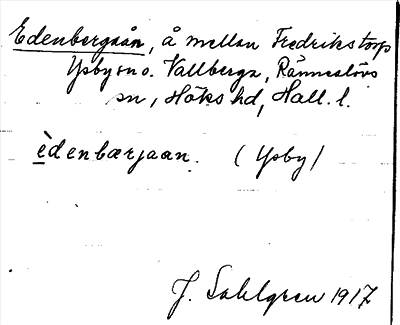 Edenbergaån, å mellan Fredrikstorp
Ysby sn o. Vallberga, Ränneslövs
sn, Höks hd, Hall. l.
èdenbærjaan. (Ysby)
J. Sahlgren 1917